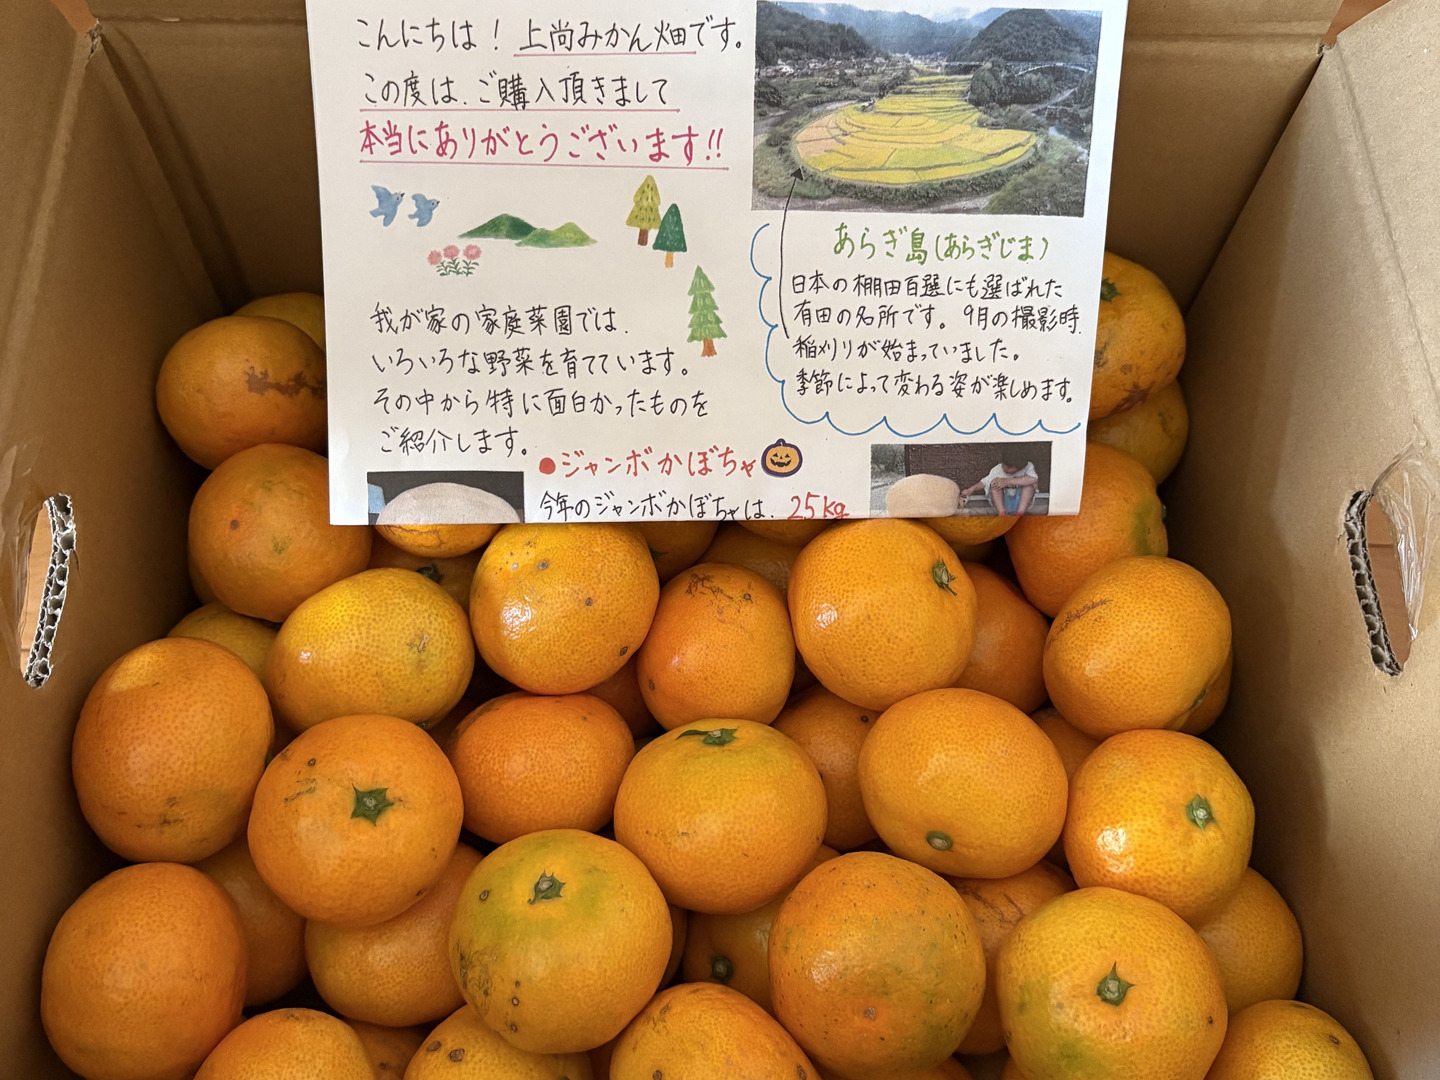 こんにちは！上尚みかん畑です。
この度は、ご購入頂きまして
本当にありがとうございます!!
我が家の家庭菜園では、
いろいろな野菜を育てています。
その中から特に面白かったものを
ご紹介します。
あらぎ島(あらぎじま)
日本の棚田百選にも選ばれた
有田の名所です。9月の撮影時、
稲刈りが始まっていました。
季節によって変わる姿が楽しめます。
●ジャンボかぼちゃ
今年のジャンボかぼちゃは、25kg